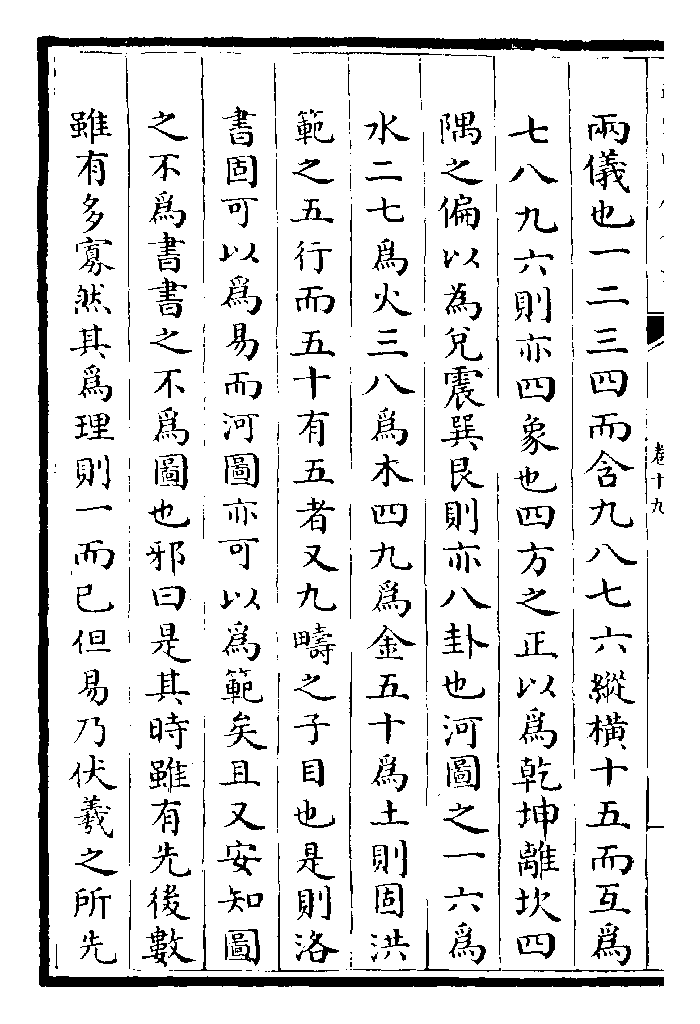 兩儀也一二三四而含九八七六縱橫十五而互爲
七八九六則亦四象也四方之正以爲乾坤離坎四
隅之偏以為兌震巽艮則亦八卦也河圖之一六爲
水二七爲火三八爲木四九爲金五十爲土則固洪
範之五行而五十有五者又九疇之子目也是則洛
書固可以爲易而河圖亦可以爲範矣且又安知圖
之不爲書書之不爲圖也邪曰是其時雖有先後數
雖有多寡然其爲理則一而已但易乃伏羲之所先
卷十九